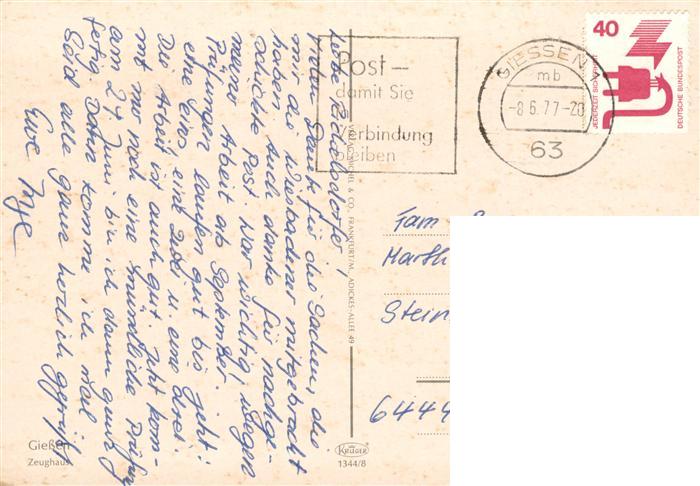 Vielen Dank für die Sachen, die
mir die Wiesbadener mitgebracht
haben. Auch danke für nachge-
schickte Post. War wichtig, wegen
meiner Arbeit ab September.
Prüfungen laufen gut bis jetzt:
eine eins, eine zwei u. eine drei.
Die Arbeit ist auch gut. Jetzt kom-
mt nur noch eine mündliche Prüfung
am 24. Juni bin ich dann ganz
fertig. Dann komme ich mal
Seid alle ganz herzlich gegrüßt
Eure
Gießen
Zeughaus
Post –
damit Sie
in
Verbindung
bleiben
GIESSEN
mb
-8.6.77-20
63
40
JEDERZEIT SICHERHEIT
DEUTSCHE BUNDESPOST
& CO. FRANKFURT/M. ADICKES-ALLEE 49
KRÜGER
1344/8
Fam
Marth
Stein
6444